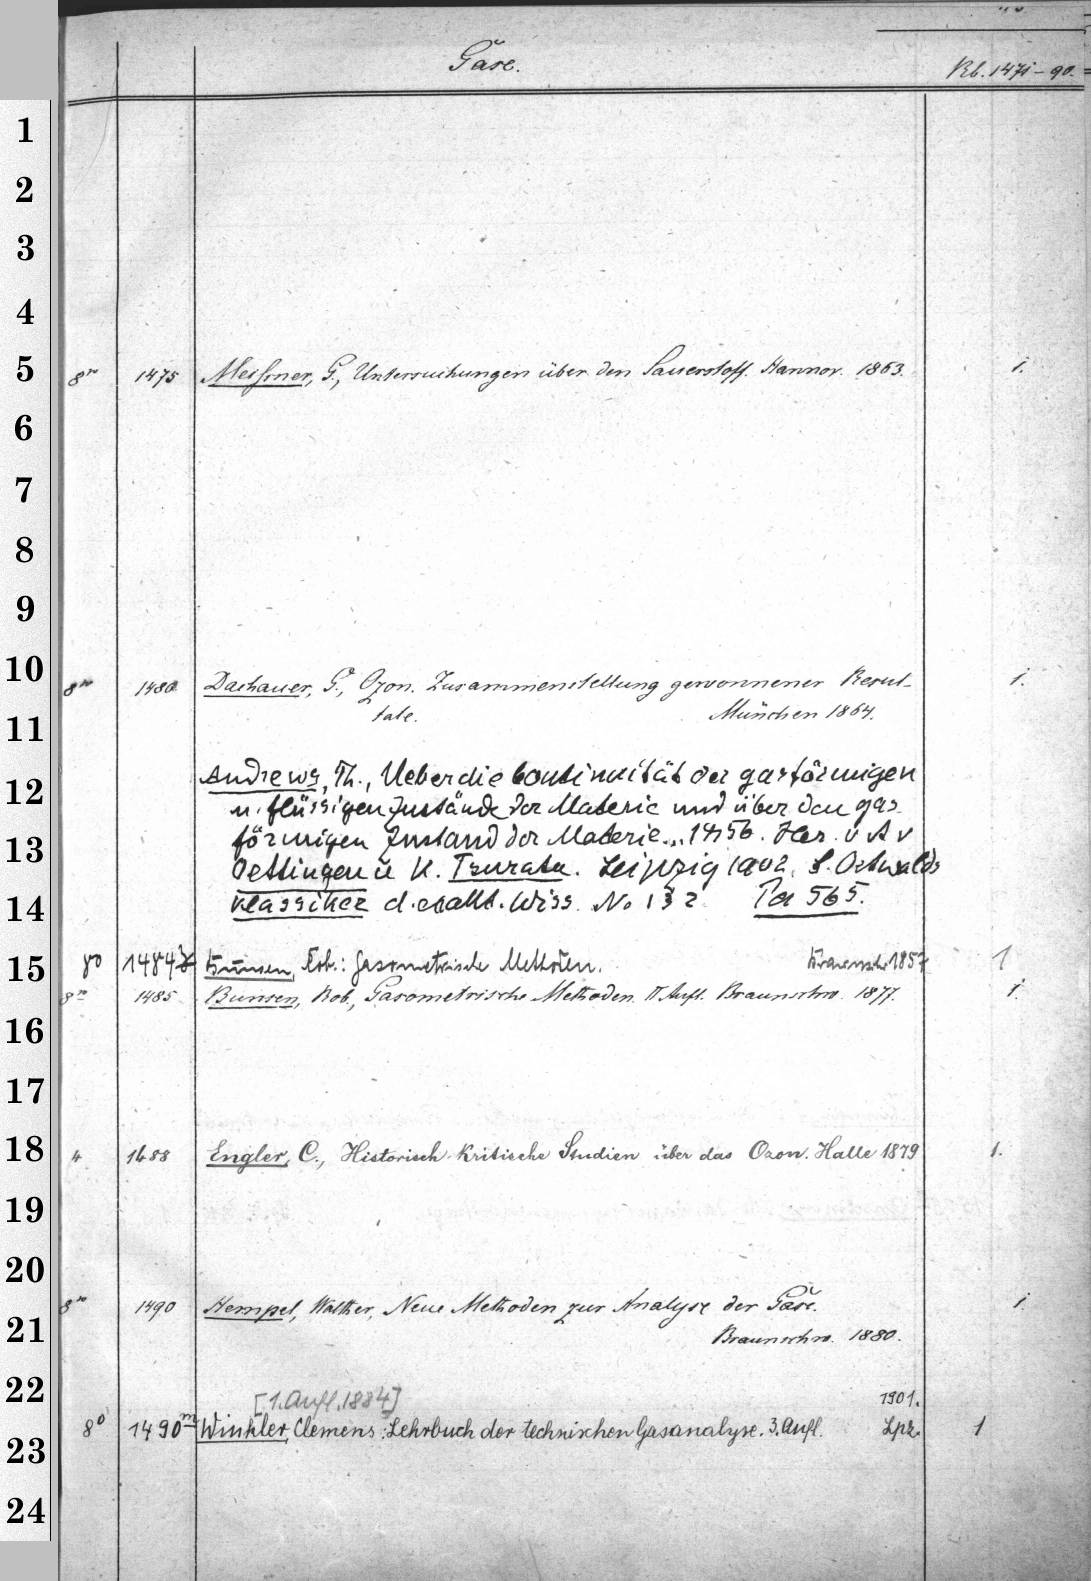 Gase.
Kb. 1471-90.
8º 1475 Meißner, G., Untersuchungen über den Sauerstoff. Hannov. 1863. 1.
8º 1480 Dachauer, G., Ozon. Zusammenstellung gewonnener Resul-
tate. München 1864. 1.
Andrews, Th., Ueber die Continuität der gasförmigen
u. flüssigen Zustände der Materie und über den gas
förmigen Zustand der Materie. Her. v A v
Oettingen u K. Tsuruta. Leipzig 1902. S. Ostwalds
Klassiker d. exakt. Wiss. No 132 Pa 565.
8º 1484 Bunsen, Rob.: Gasometrische Methoden. Braunschw 1857 1
8º 1485 Bunsen, Rob., Gasometrische Methoden. II Aufl. Braunschw. 1877. 1.
4 1488 Engler, C., Historisch-Kritische Studien über das Ozon. Halle 1879 1.
8º 1490 Hempel, Walther, Neue Methoden zur Analyse der Gase. 1.
Braunschw. 1880.
[1. Aufl. 1884] 1901.
8º 1490m Winkler, Clemens: Lehrbuch der technischen Gasanalyse. 3. Aufl. Lpz. 1
1
2
3
4
5
6
7
8
9
10
11
12
13
14
15
16
17
18
19
20
21
22
23
24